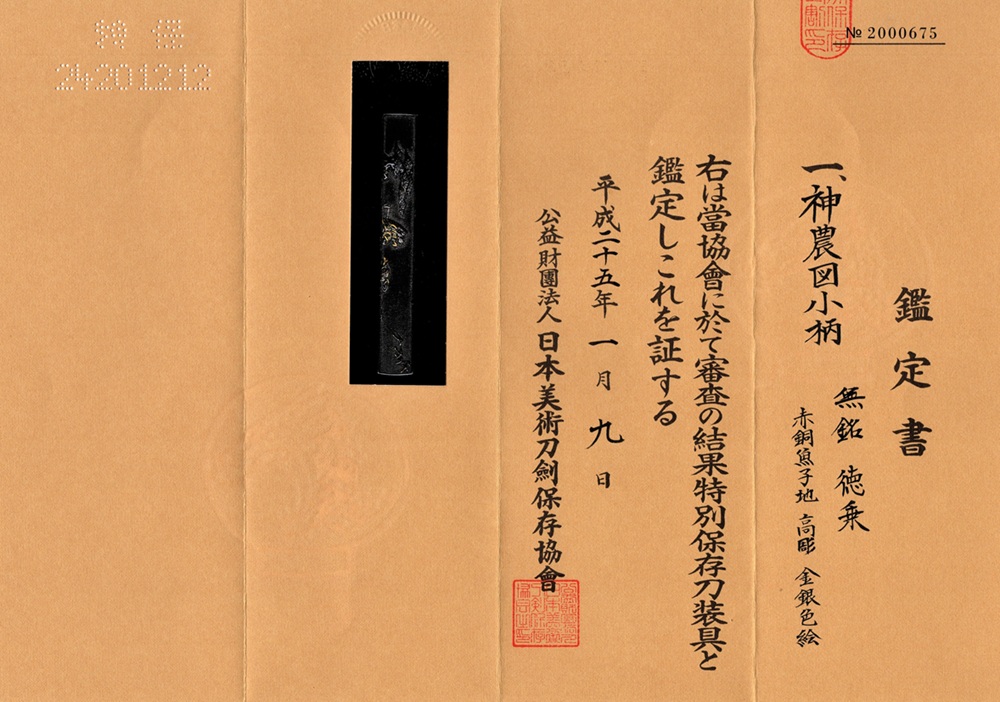 № 2000675
鑑定書
一、神農図小柄
無銘 徳乗
赤銅魚子地 高彫 金銀色絵
右は當協會に於て審査の結果特別保存刀装具と
鑑定しこれを証する
平成二十五年一月九日
公益財團法人 日本美術刀劍保存協會
特保
24201212